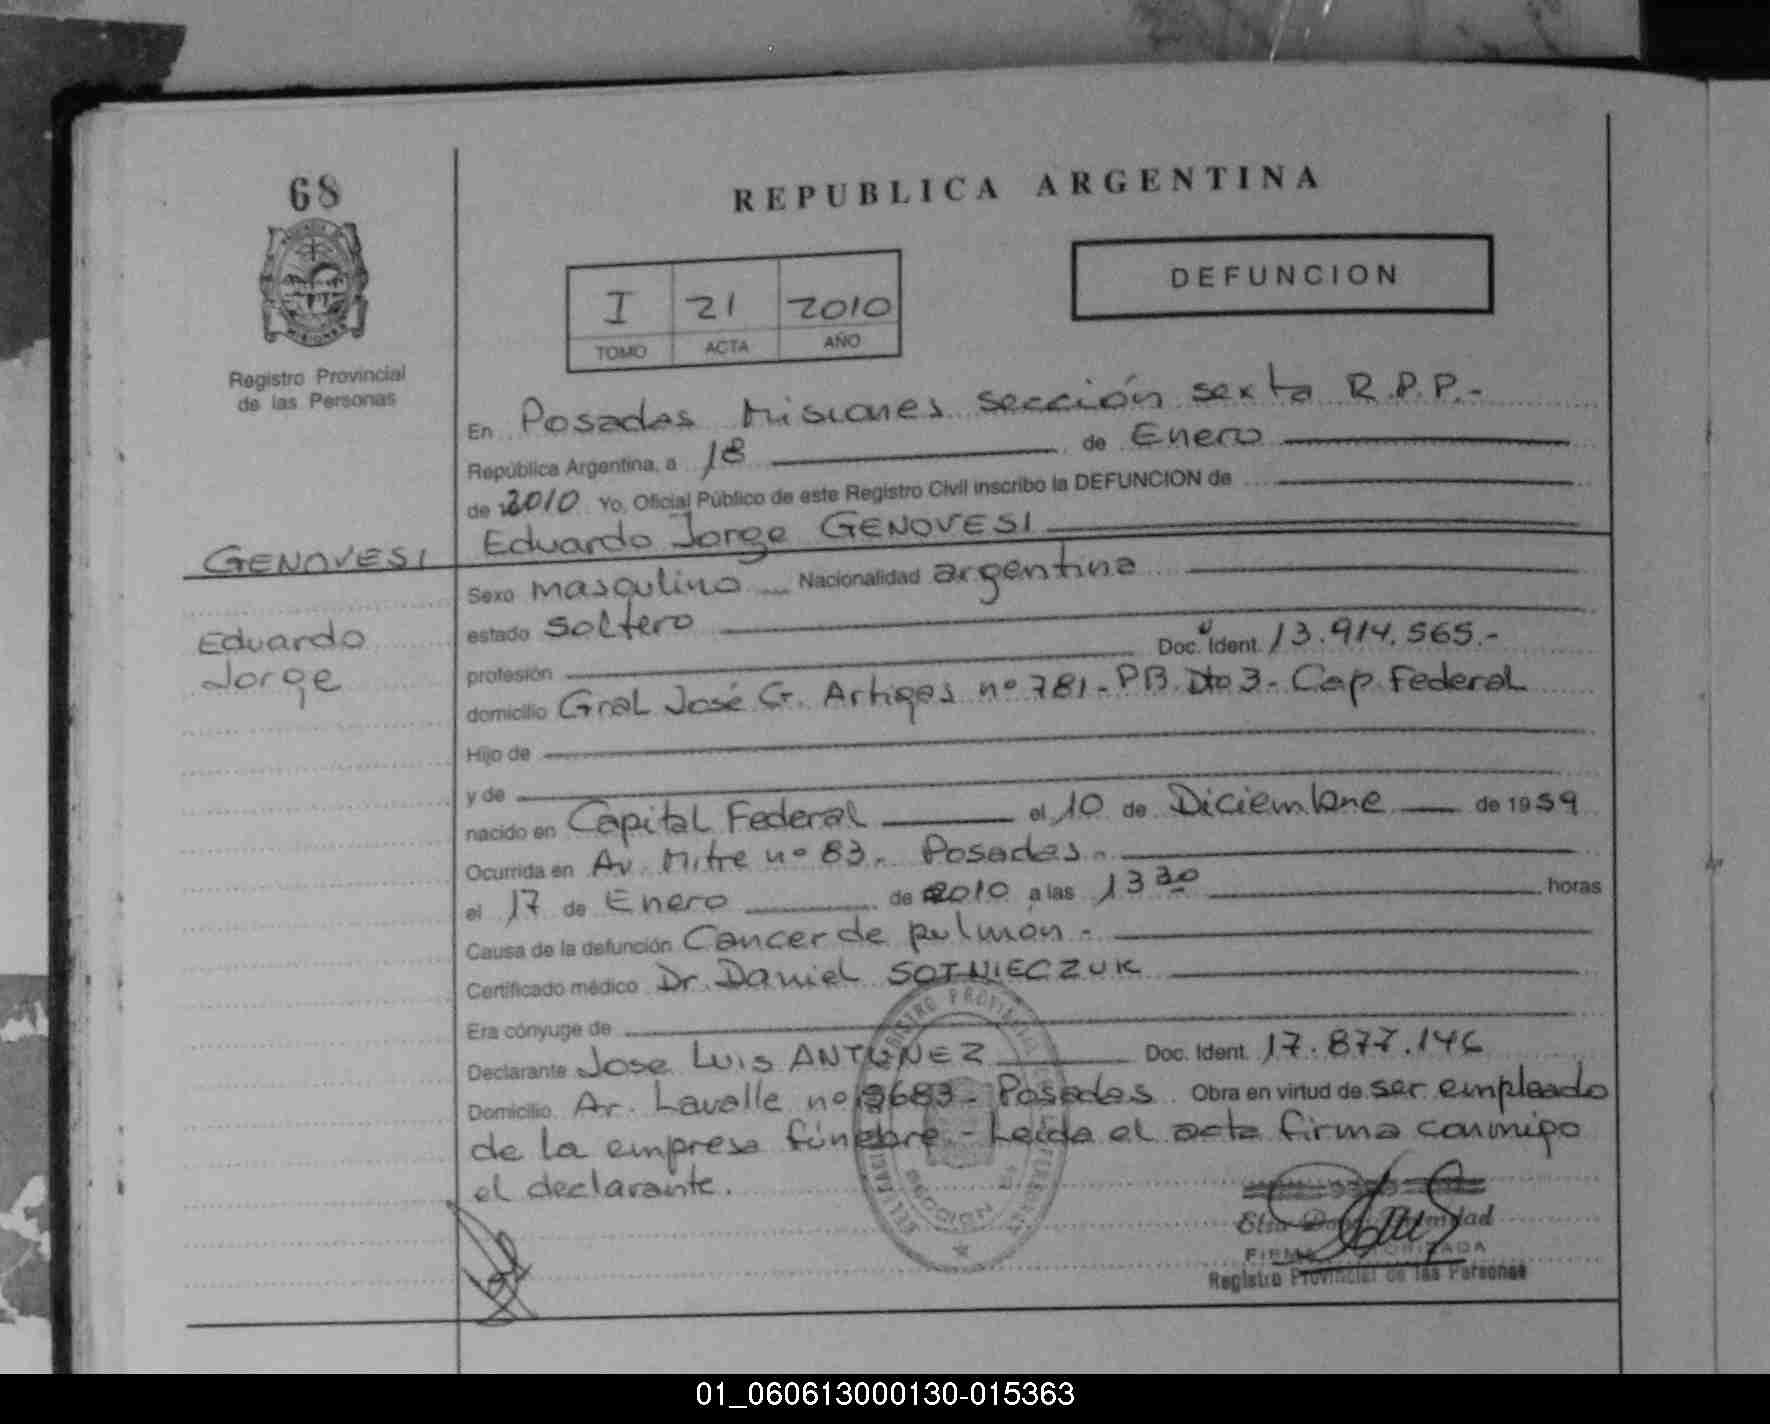 68
REPUBLICA ARGENTINA
DEFUNCION
I 21 2010
TOMO ACTA AÑO
Registro Provincial
de las Personas
En Posadas Misiones sección sexta R.P.P.-
República Argentina, a 18 de Enero
de 2010 Yo, Oficial Público de este Registro Civil inscribo la DEFUNCION de
GENOVESI Eduardo Jorge GENOVESI
Eduardo
Jorge
Sexo masculino Nacionalidad argentina
estado soltero
profesión Doc. Ident. 13.914.565.-
domicilio Gral José G. Artigas nº 781- PB. Dto 3- Cap. Federal
Hijo de
y de
nacido en Capital Federal el 10 de Diciembre de 1959
Ocurrida en Av. Mitre nº 83.- Posadas.-
el 17 de Enero de 2010 a las 13 30 horas
Causa de la defunción Cancer de pulmón.-
Certificado médico Dr. Daniel SOTNIECZUK
Era cónyuge de
Declarante Jose Luis ANTUNEZ Doc. Ident. 17.877.146
Domicilio Av. Lavalle nº 3683- Posadas Obra en virtud de ser empleado
de la empresa fúnebre.- Leída el acta firma conmigo
el declarante.
REGISTRO PROVINCIAL
MISIONES
FIRMA AUTORIZADA
Registro Provincial de las Personas
01_060613000130-015363